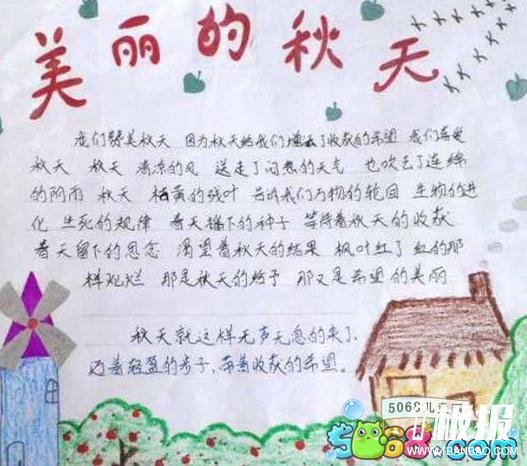 美丽的秋天
我们赞美秋天 因为秋天给我们增添了收获的希望 我们喜爱
秋天 秋天 清凉的风 送走了闷热的天气 也吹乞了连绵
的阴雨 秋天 枯黄的残叶 告诉我们万物的轮回 生物的进
化 生死的规律 春天播下的种子 等待着秋天的收获
春天留下的思念 渴望着秋天的结果 枫叶红了 红的那
样灿烂 那是秋天的给予 那又是希望的美丽
秋天就这样无声无息的来了,
迈着轻盈的步子,带着收获的希望。
5068儿童
板报
5068.com
WWW.BANBAO.COM